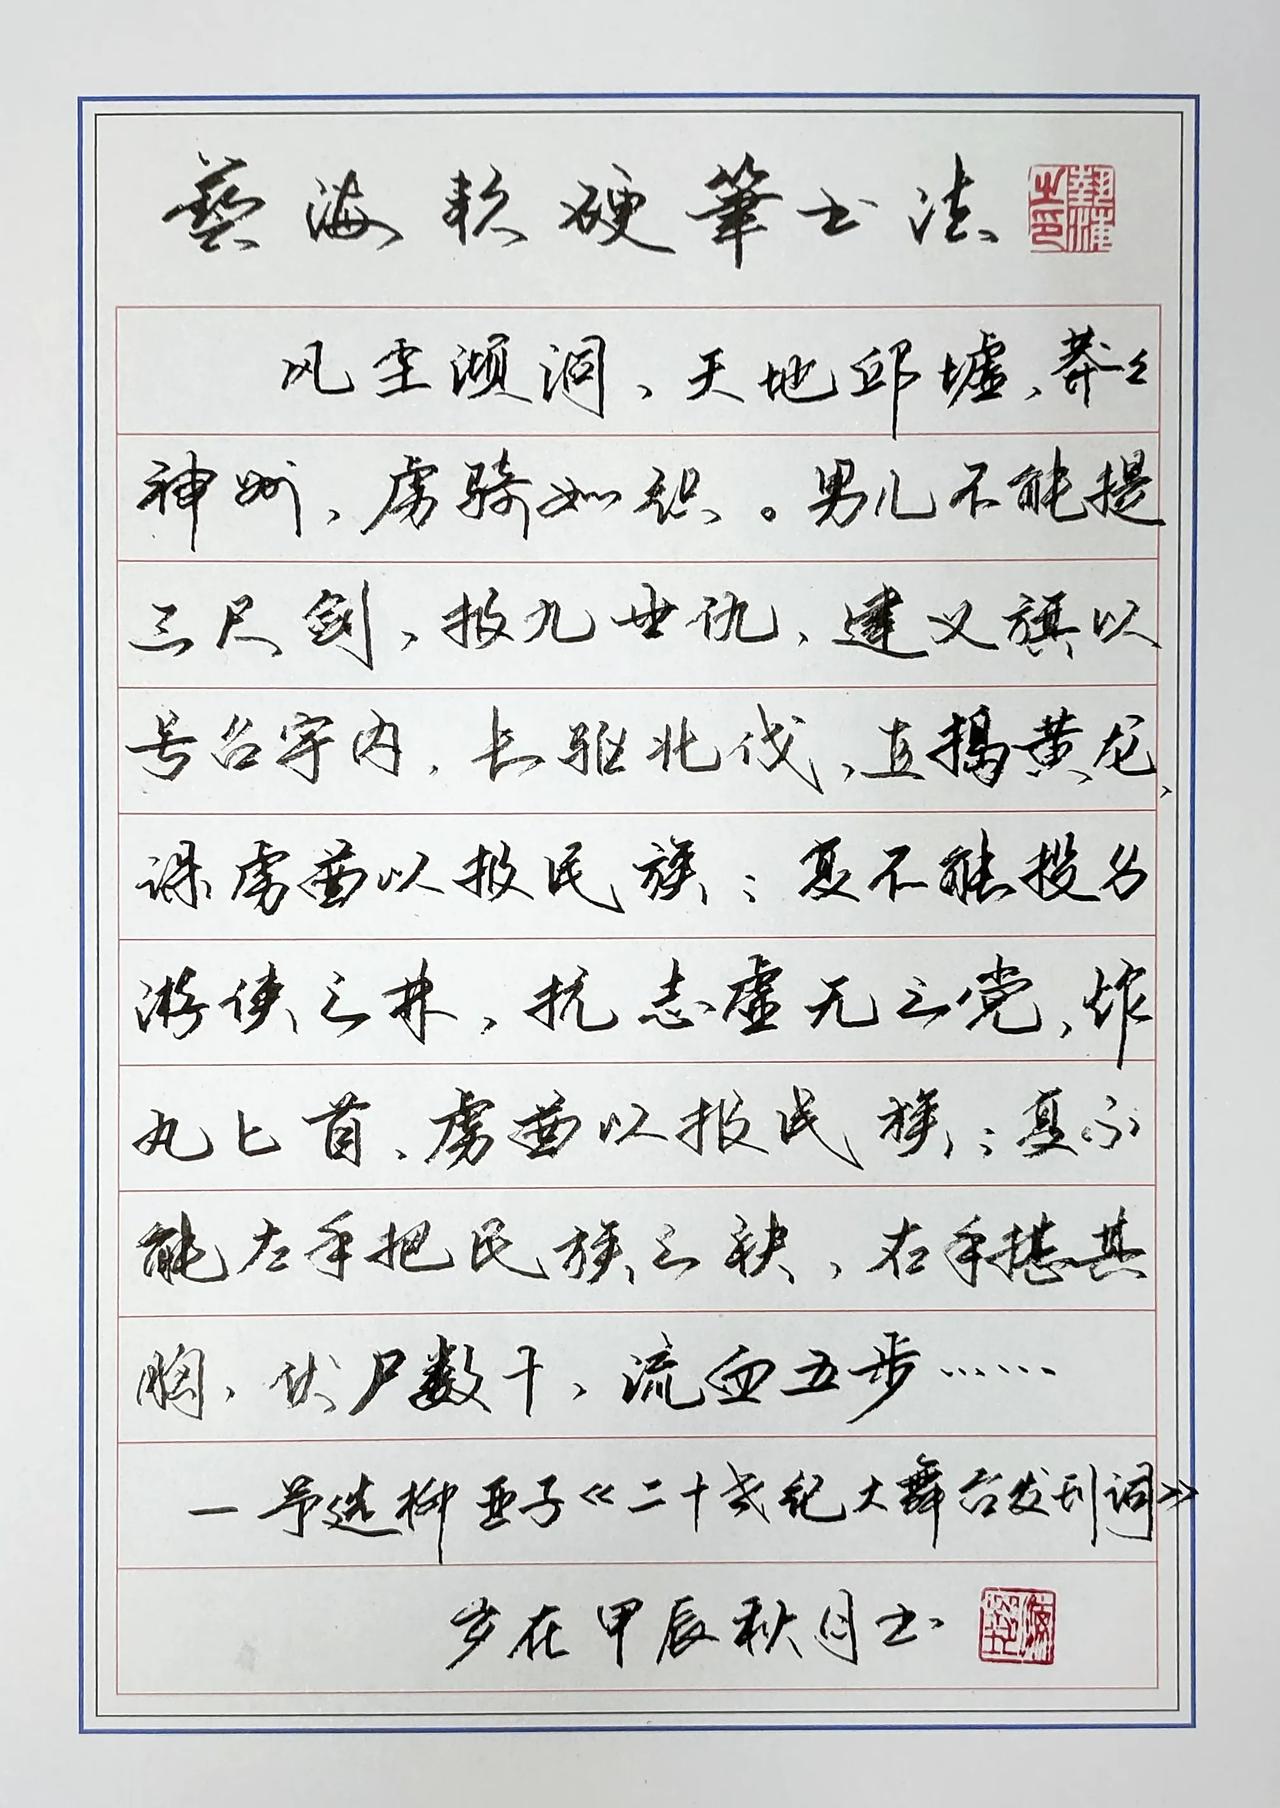 藝海软硬筆书法
风尘澒洞、天地邱墟、莽々
神州、虏骑如织。男儿不能提
三尺剑、报九世仇、建义旗以
号召宇内、长驱北伐、直捣黄龙、
诛虏酋以报民族；复不能投身
游侠之林、抗志虚无之党、炸
丸匕首、虏酋以报民族；复不
能左手把民族之袂、右手揕其
胸、伏尸数十、流血五步……
一节选柳亚子《二十世纪大舞台发刊词》
岁在甲辰秋月书